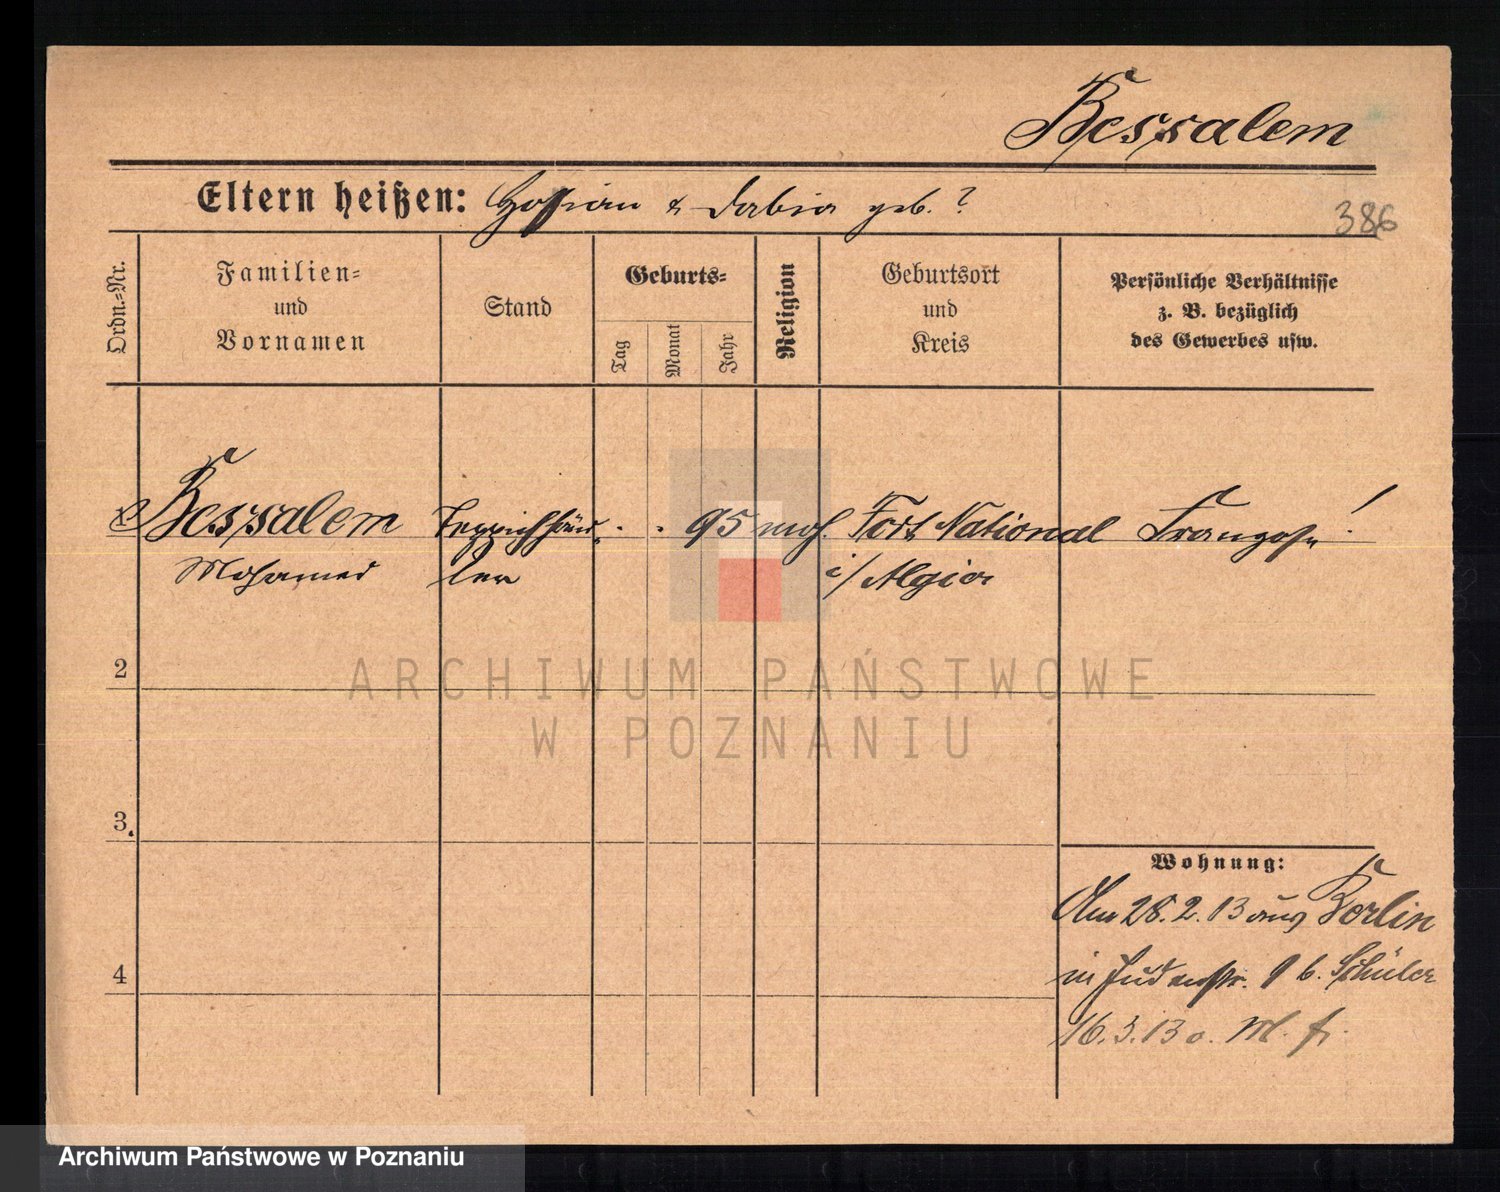 Bessalem
Eltern heißen: Hossian & Dabia geb. ?
386
Ordn.-Nr.
Familien-
und
Vornamen
Stand
Geburts-
Tag
Monat
Jahr
Religion
Geburtsort
und
Kreis
Persönliche Verhältnisse
z. B. bezüglich
des Gewerbes usw.
Bessalem Teppichhänd- . . 95 moh. Fort National Franzose!
Mohamed ler i/ Algier
2
ARCHIWUM PAŃSTWOWE
W POZNANIU
3
Wohnung:
Am 28.2.13 aus Berlin
in Judenstr. 9 b. Schüler
4
16.3.13 o. M. fr.
Archiwum Państwowe w Poznaniu